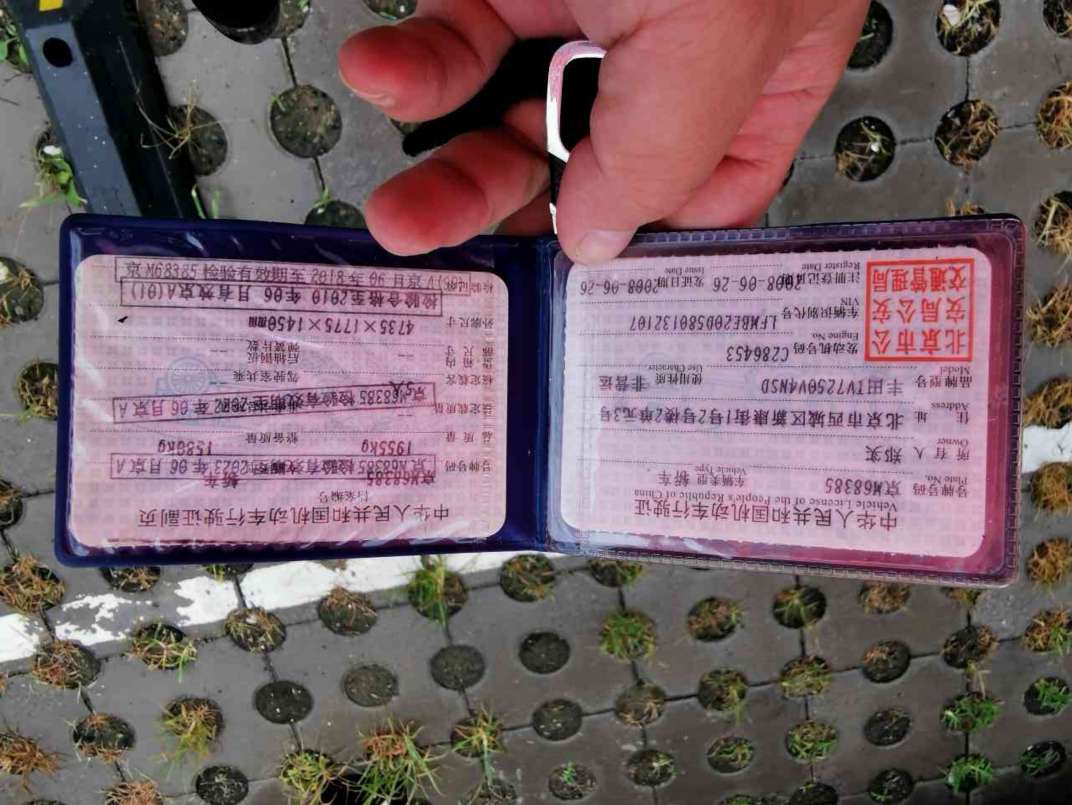 中华人民共和国机动车行驶证
Vehicle License of the People's Republic of China
号牌号码 京M68385 车辆类型 轿车
Plate No. Vehicle Type
所有人 郑实
Owner
住址 北京市西城区新康街1号2号楼2单元3号
Address
品牌型号 丰田TV7250V4NSD 使用性质 非营运
Model Use Character
发动机号码 C286453
Engine No.
车辆识别代号 LFMBE20D580132107
VIN
注册登记日期 2008-06-26 发证日期 2008-06-26
Register Date Issue Date
北京市公
安局公安
交通管理局
中华人民共和国机动车行驶证副页
档案编号
号牌号码 京M68385 轿车
京M68385 检验有效期至2023年06月京A
总质量 1955kg 整备质量 1580kg
核定载质量
检验有效期至2022年06月京A
京M68385
核定载客 5人 驾驶室共乘 --
货箱内
部尺寸 -- 后轴钢板
弹簧片数 --
外廓尺寸 4735×1775×1450mm
检验合格至2010年06月有效京A(01)
检验记录
京M68385 检验有效期至2018年06月京A